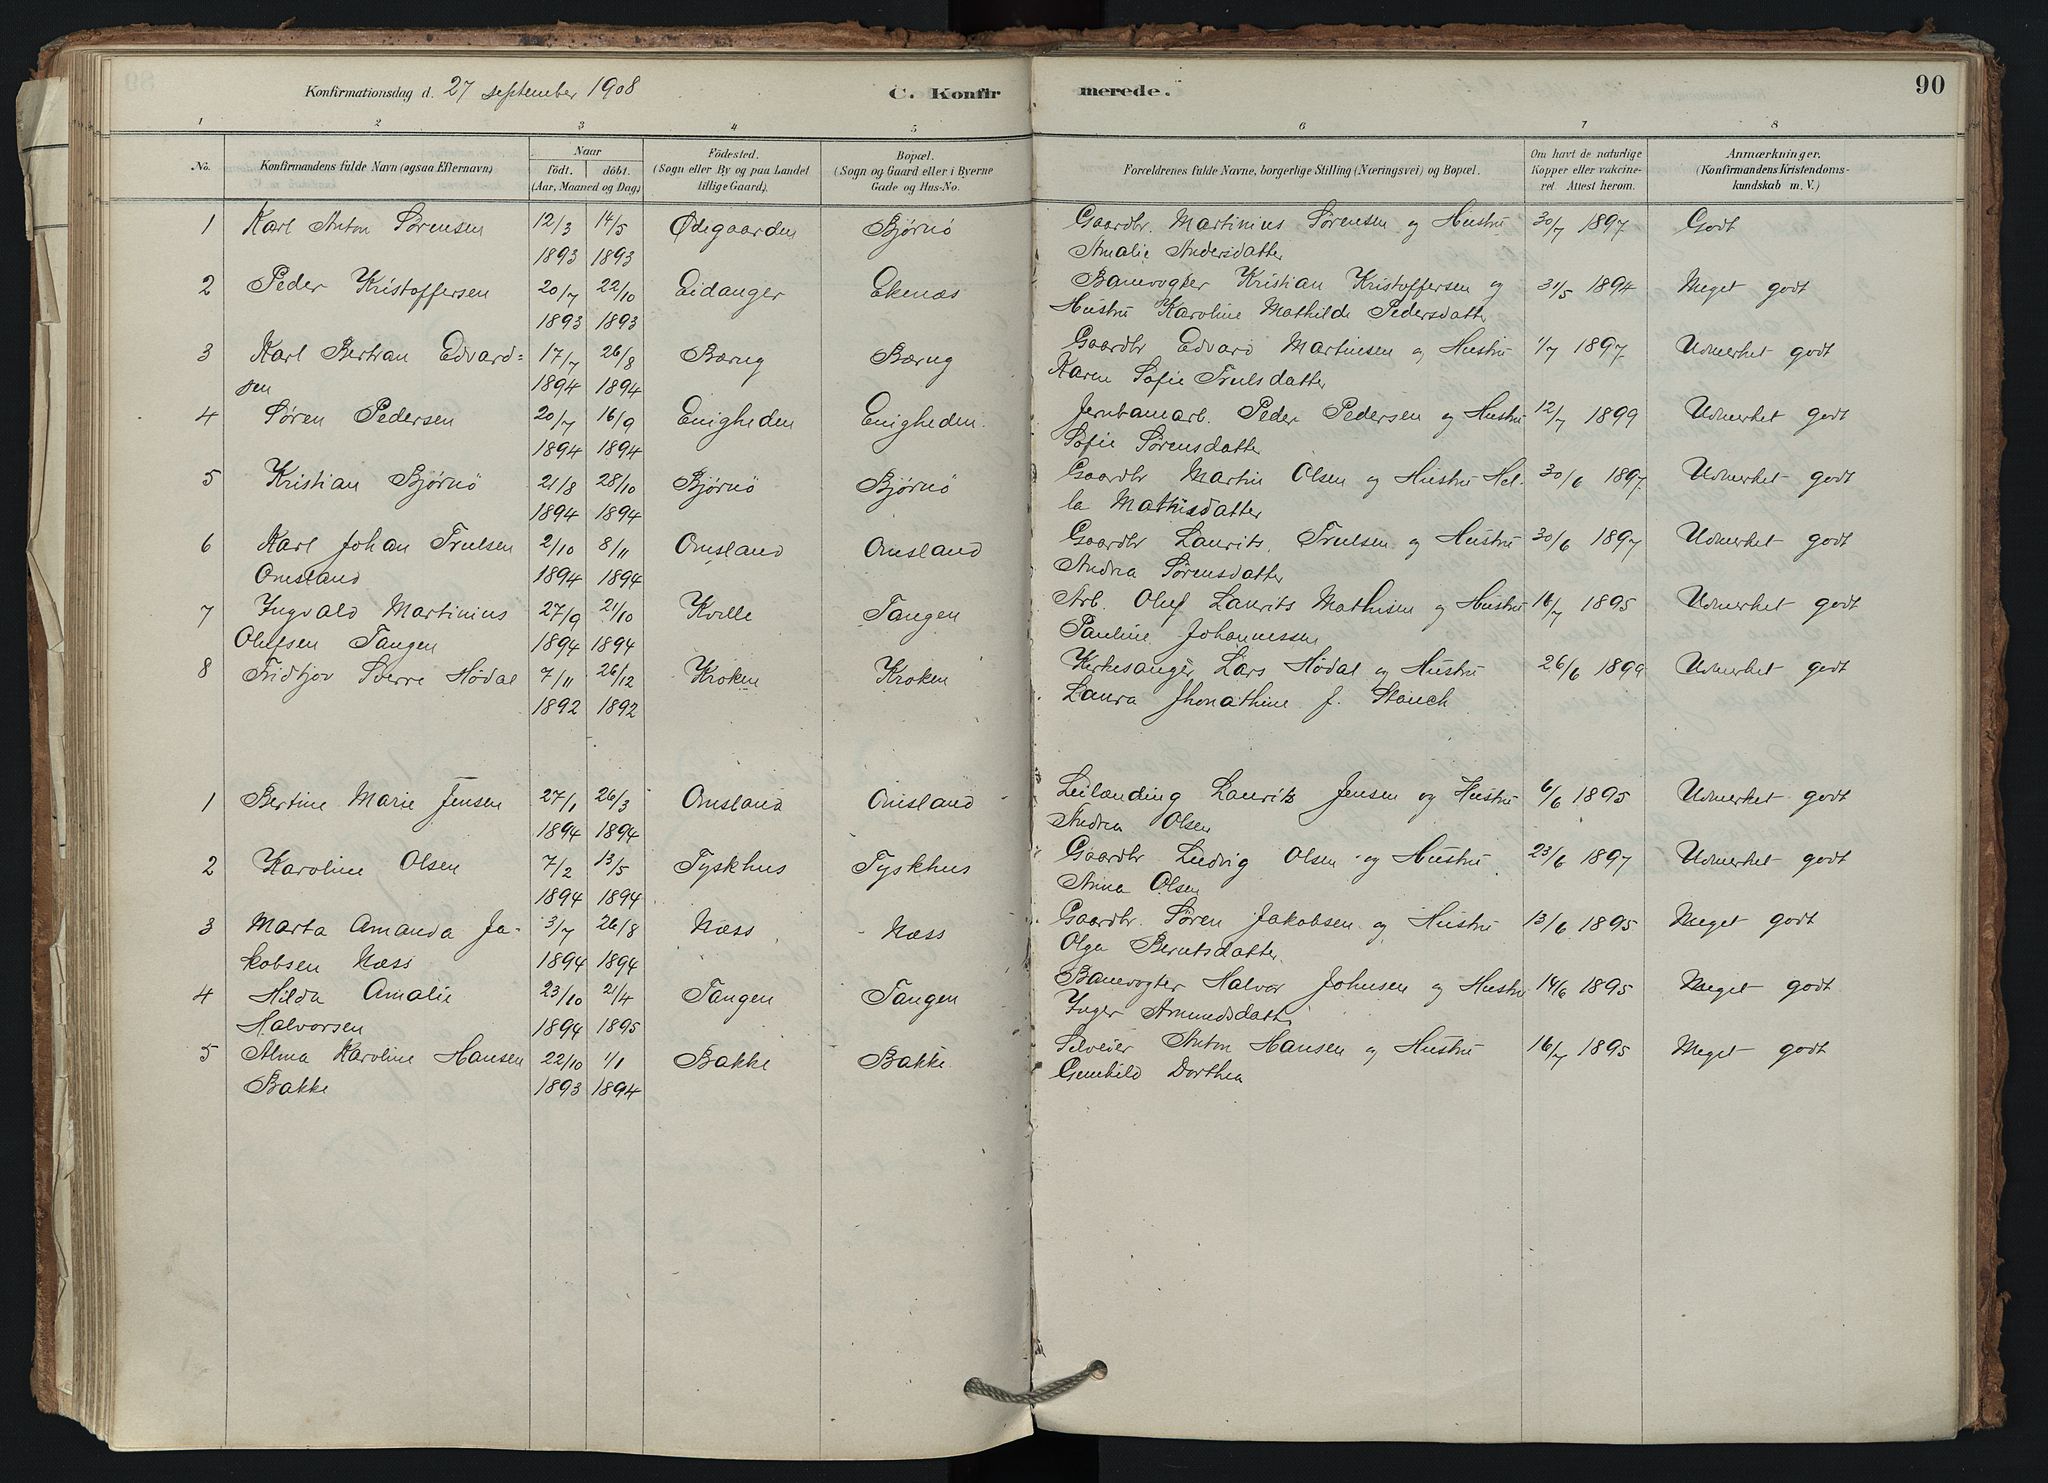 Konfirmationsdag d. 27 september 1908 C. Konfirmerede. 90
1 2 3 4 5 6 7 8
No. Konfirmandens fulde Navn (ogsaa Efternavn) Naar födt. döbt. (Aar, Maaned og Dag) Födested. (Sogn eller By og paa Landet tillige Gaard). Bopæl. (Sogn og Gaard eller i Byerne Gade og Hus-No. Forældrenes fulde Navne, borgerlige Stilling (Næringsvei) og Bopæl. Om havt de naturlige Kopper eller vakcineret. Attest herom. Anmærkninger. (Konfirmandens Kristendomskundskab m. V.)
1 Karl Anton Sørensen 12/3 14/5 Ødegaarden Bjørnø Gaardbr. Martinius Sørensen og Hustru 30/7 1897 Godt
1893 1893 Amalie Andersdatter
2 Peder Kristoffersen 20/7 22/10 Eidanger Ekenæs Banevogter Kristian Kristoffersen og 31/5 1894 Meget godt
1893 1893 Hustru Karoline Mathilde Pedersdatter
3 Karl Bertran Edvard- 17/7 26/8 Barug Barug Gaardbr Edvard Martinsen og Hustru 1/7 1897 Udmerket godt
sen 1894 1894 Karen Sofie Trulsdatter
4 Søren Pedersen 20/7 16/9 Enigheden Enigheden. Jernbanearb. Peder Pedersen og Hustru 12/7 1899 Udmerket godt
1894 1894 Sofie Sørensdatter
5 Kristian Bjørnø 21/8 28/10 Bjørnø Bjørnø Gaardbr Martin Olsen og Hustru Hel- 30/6 1897 Udmerket godt
1894 1894 la Mathisdatter
6 Karl Johan Trulsen 2/10 8/11 Omsland Omsland Gaardbr Laurits Trulsen og Hustru 30/6 1897 Udmerket godt
Omsland 1894 1894 Andrea Sørensdatter
7 Ingvald Martinius 27/9 21/10 Kville Tangen Arb. Oluf Laurits Mathisen og Hustru 16/7 1895 Udmerket godt
Olufsen Tangen 1894 1894 Pauline Johannessen
8 Fridtjov Sverre Hødal 7/11 26/12 Kroken Kroken Kirkesanger Lars Hødal og Hustru 26/6 1899 Udmerket godt
1892 1892 Laura Jhonathine J. Stouch
1 Bertine Marie Jensen 27/1 26/3 Omsland Omsland Leilænding Laurits Jensen og Hustru 6/6 1895 Udmerket godt
1894 1894 Andrea Olsen
2 Karoline Olsen 7/2 13/5 Tyskhus Tyskhus Gaardbr Ludvig Olsen og Hustru 23/6 1897 Udmerket godt
1894 1894 Anna Olsen
3 Marta Amanda Ja- 3/7 26/8 Næss Næss Gaardbr. Søren Jakobsen og Hustru 13/6 1895 Meget godt
kobsen Næss 1894 1894 Olga Berntsdatter
4 Hilda Amalie 23/10 21/4 Tangen Tangen Banevogter Halvor Johnsen og Hustru 14/6 1895 Meget godt
Halvorsen 1894 1895 Inger Amundsdatter
5 Alma Karoline Hansen 22/10 1/1 Bakke Bakke Selveier Anton Hansen og Hustru 16/7 1895 Meget godt
Bakke 1893 1894 Gunhild Dorthea